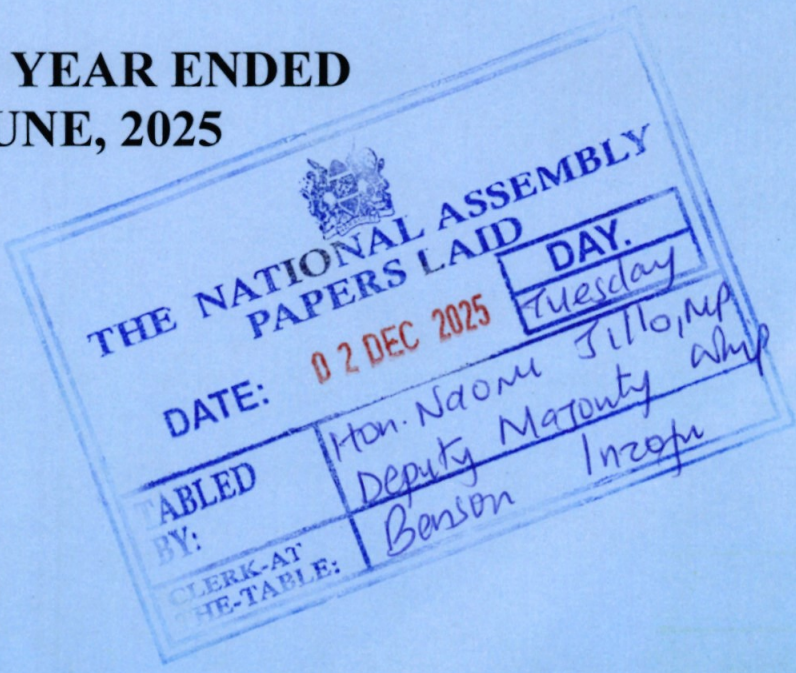 YEAR ENDED
UNE, 2025
THE NATIONAL ASSEMBLY
PAPERS LAID
DAY.
Tuesday
DATE: 02 DEC 2025
TABLED BY:
Hon. Naomi Jillo, MP
Deputy Majority Whip
CLERK-AT THE-TABLE:
Benson Inzofu